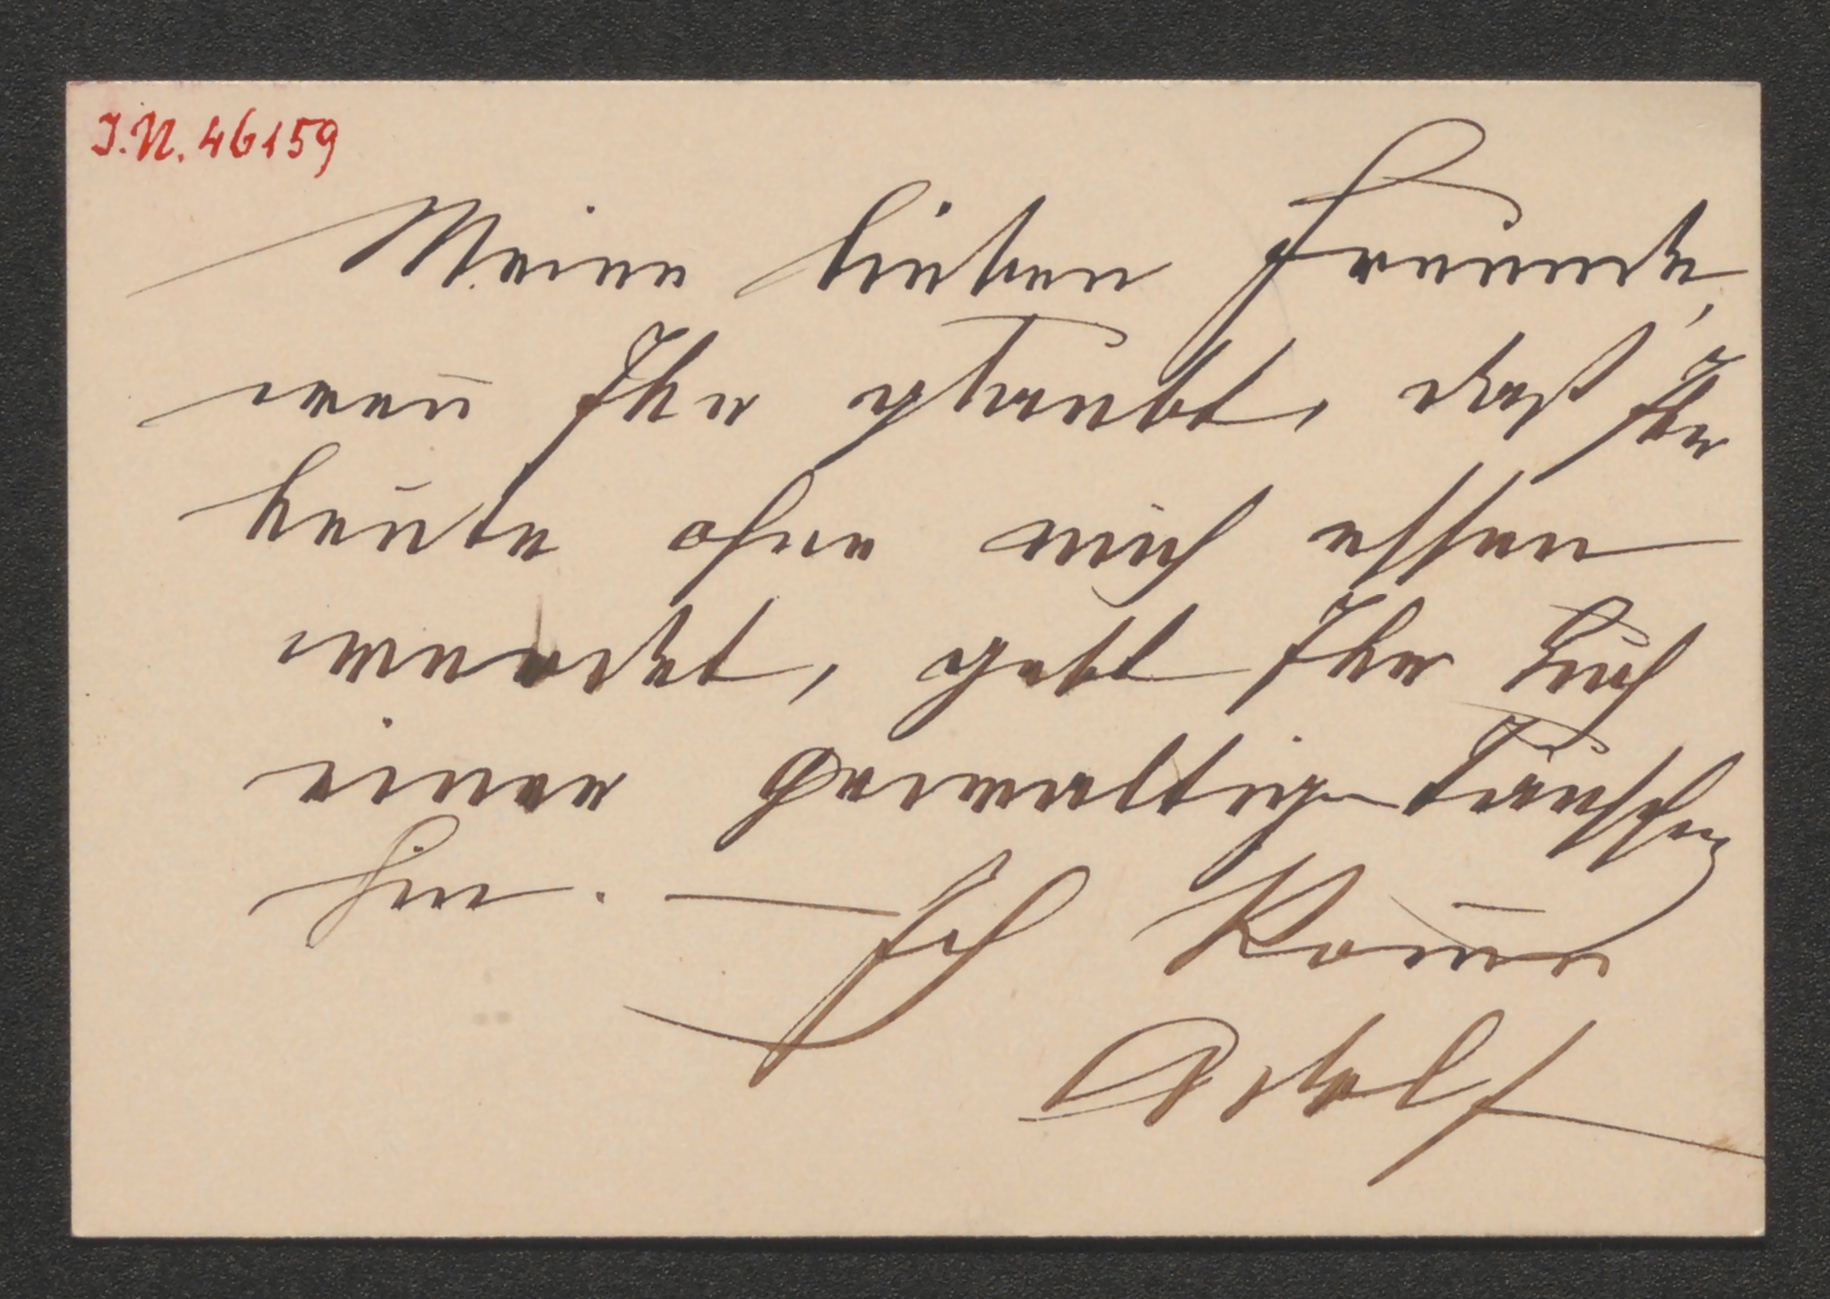 I.N. 46159
Meine lieben Freunde,
wen̅ Ihr glaubt, daß Ihr
heute ohne mich essen
werdet, gebt Ihr Euch
einer gewaltigen Täuschung
hin. — Ich kom̅e
Adolf